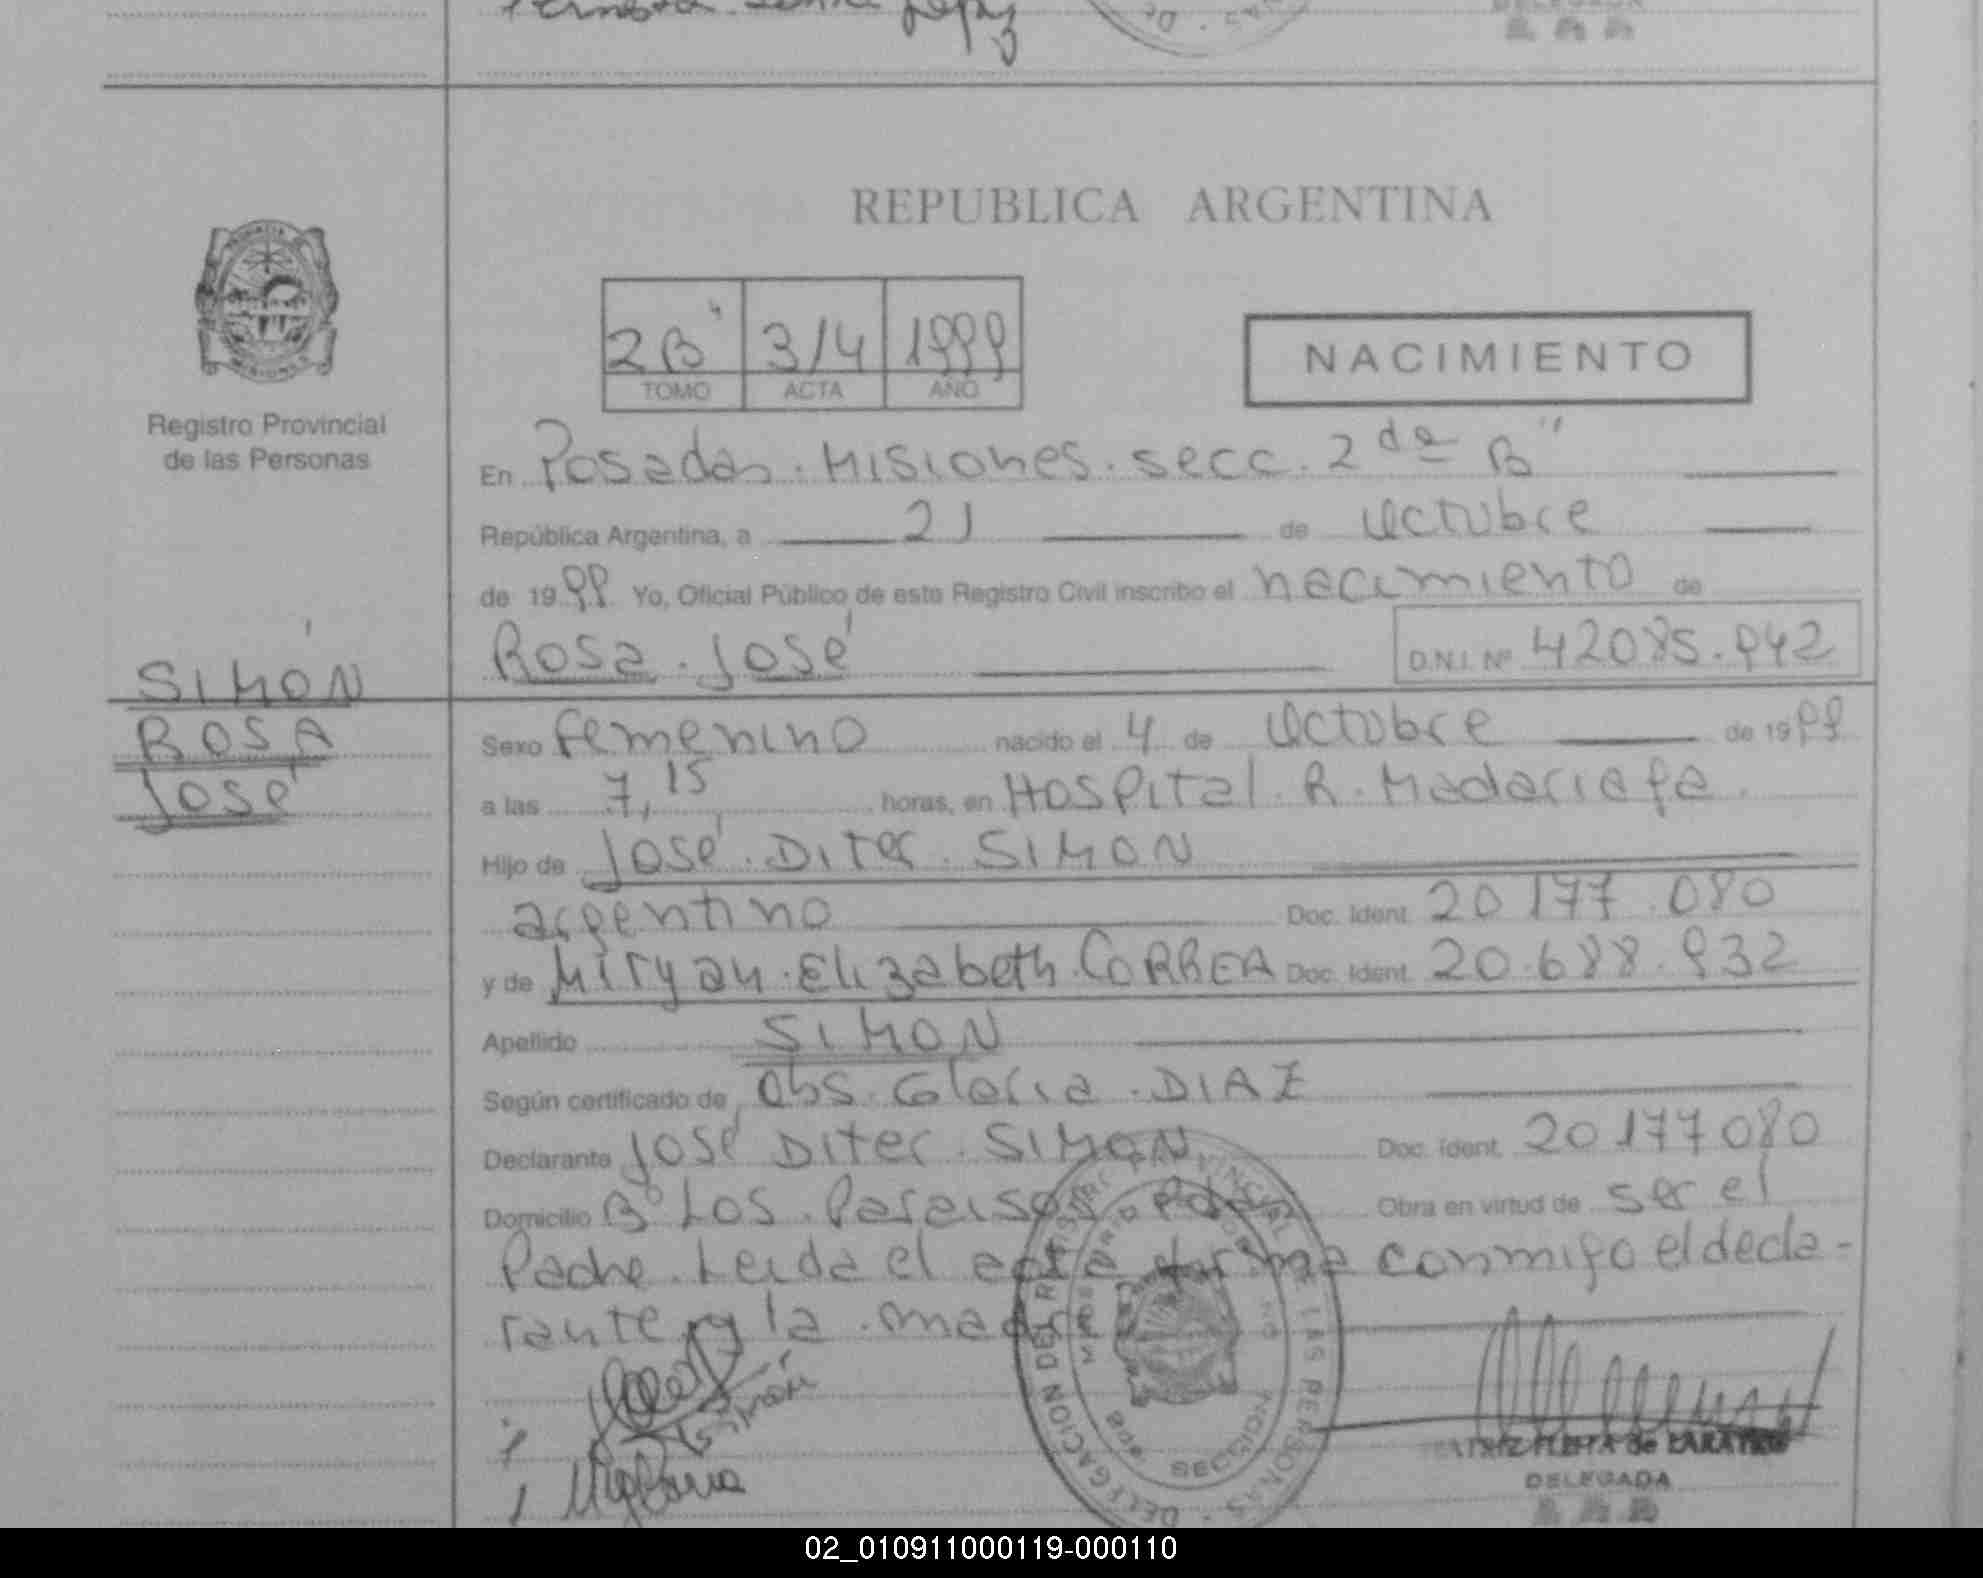 REPUBLICA ARGENTINA
2B" 3/4 1999
TOMO ACTA AÑO
NACIMIENTO
Registro Provincial
de las Personas
En Posadas. Misiones. secc. 2da B"
República Argentina, a 21 de Octubre
de 1999 Yo, Oficial Público de este Registro Civil inscribo el nacimiento de
Rosa. José D.N.I. Nº 42085.942
SIMÓN
ROSA
José
Sexo femenino nacido el 4 de Octubre de 1999
a las 7,15 horas, en Hospital. R. Madariaga.
Hijo de José. Diter. SIMON
argentino Doc. Ident. 20 177.080
y de Miryan. Elizabeth. CORREA Doc. Ident. 20.688.932
Apellido SIMON
Según certificado de Obs. Gloria. DIAZ
Declarante José Diter. SIMON Doc. Ident. 20177080
Domicilio Bº Los. Paraisos Pdas Obra en virtud de ser el
Padre. Leida el acta firma conmigo el decla-
rante y la. madre
DELEGACION DEL REGISTRO PROVINCIAL DE LAS PERSONAS
MISIONES
DELEGADA
02_010911000119-000110